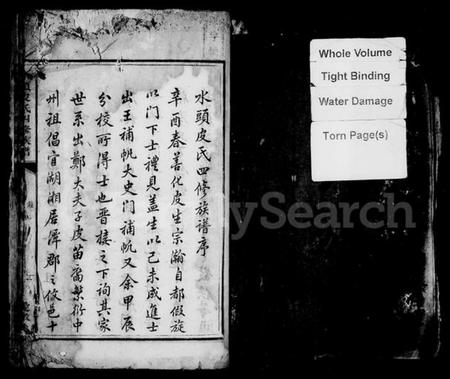 水頭皮氏四修族譜序
辛酉春善化皮生宗瀚自都假旋
以門下士禮見蓋生以己未成進士
出王補帆大史門補帆又余甲辰
分校所得士也晉接之下詢其家
世系出鄭大夫子皮苗裔繁衍中
州祖倡宦湖湘居潭郡之攸邑十
Whole Volume
Tight Binding
Water Damage
Torn Page(s)
MySearch